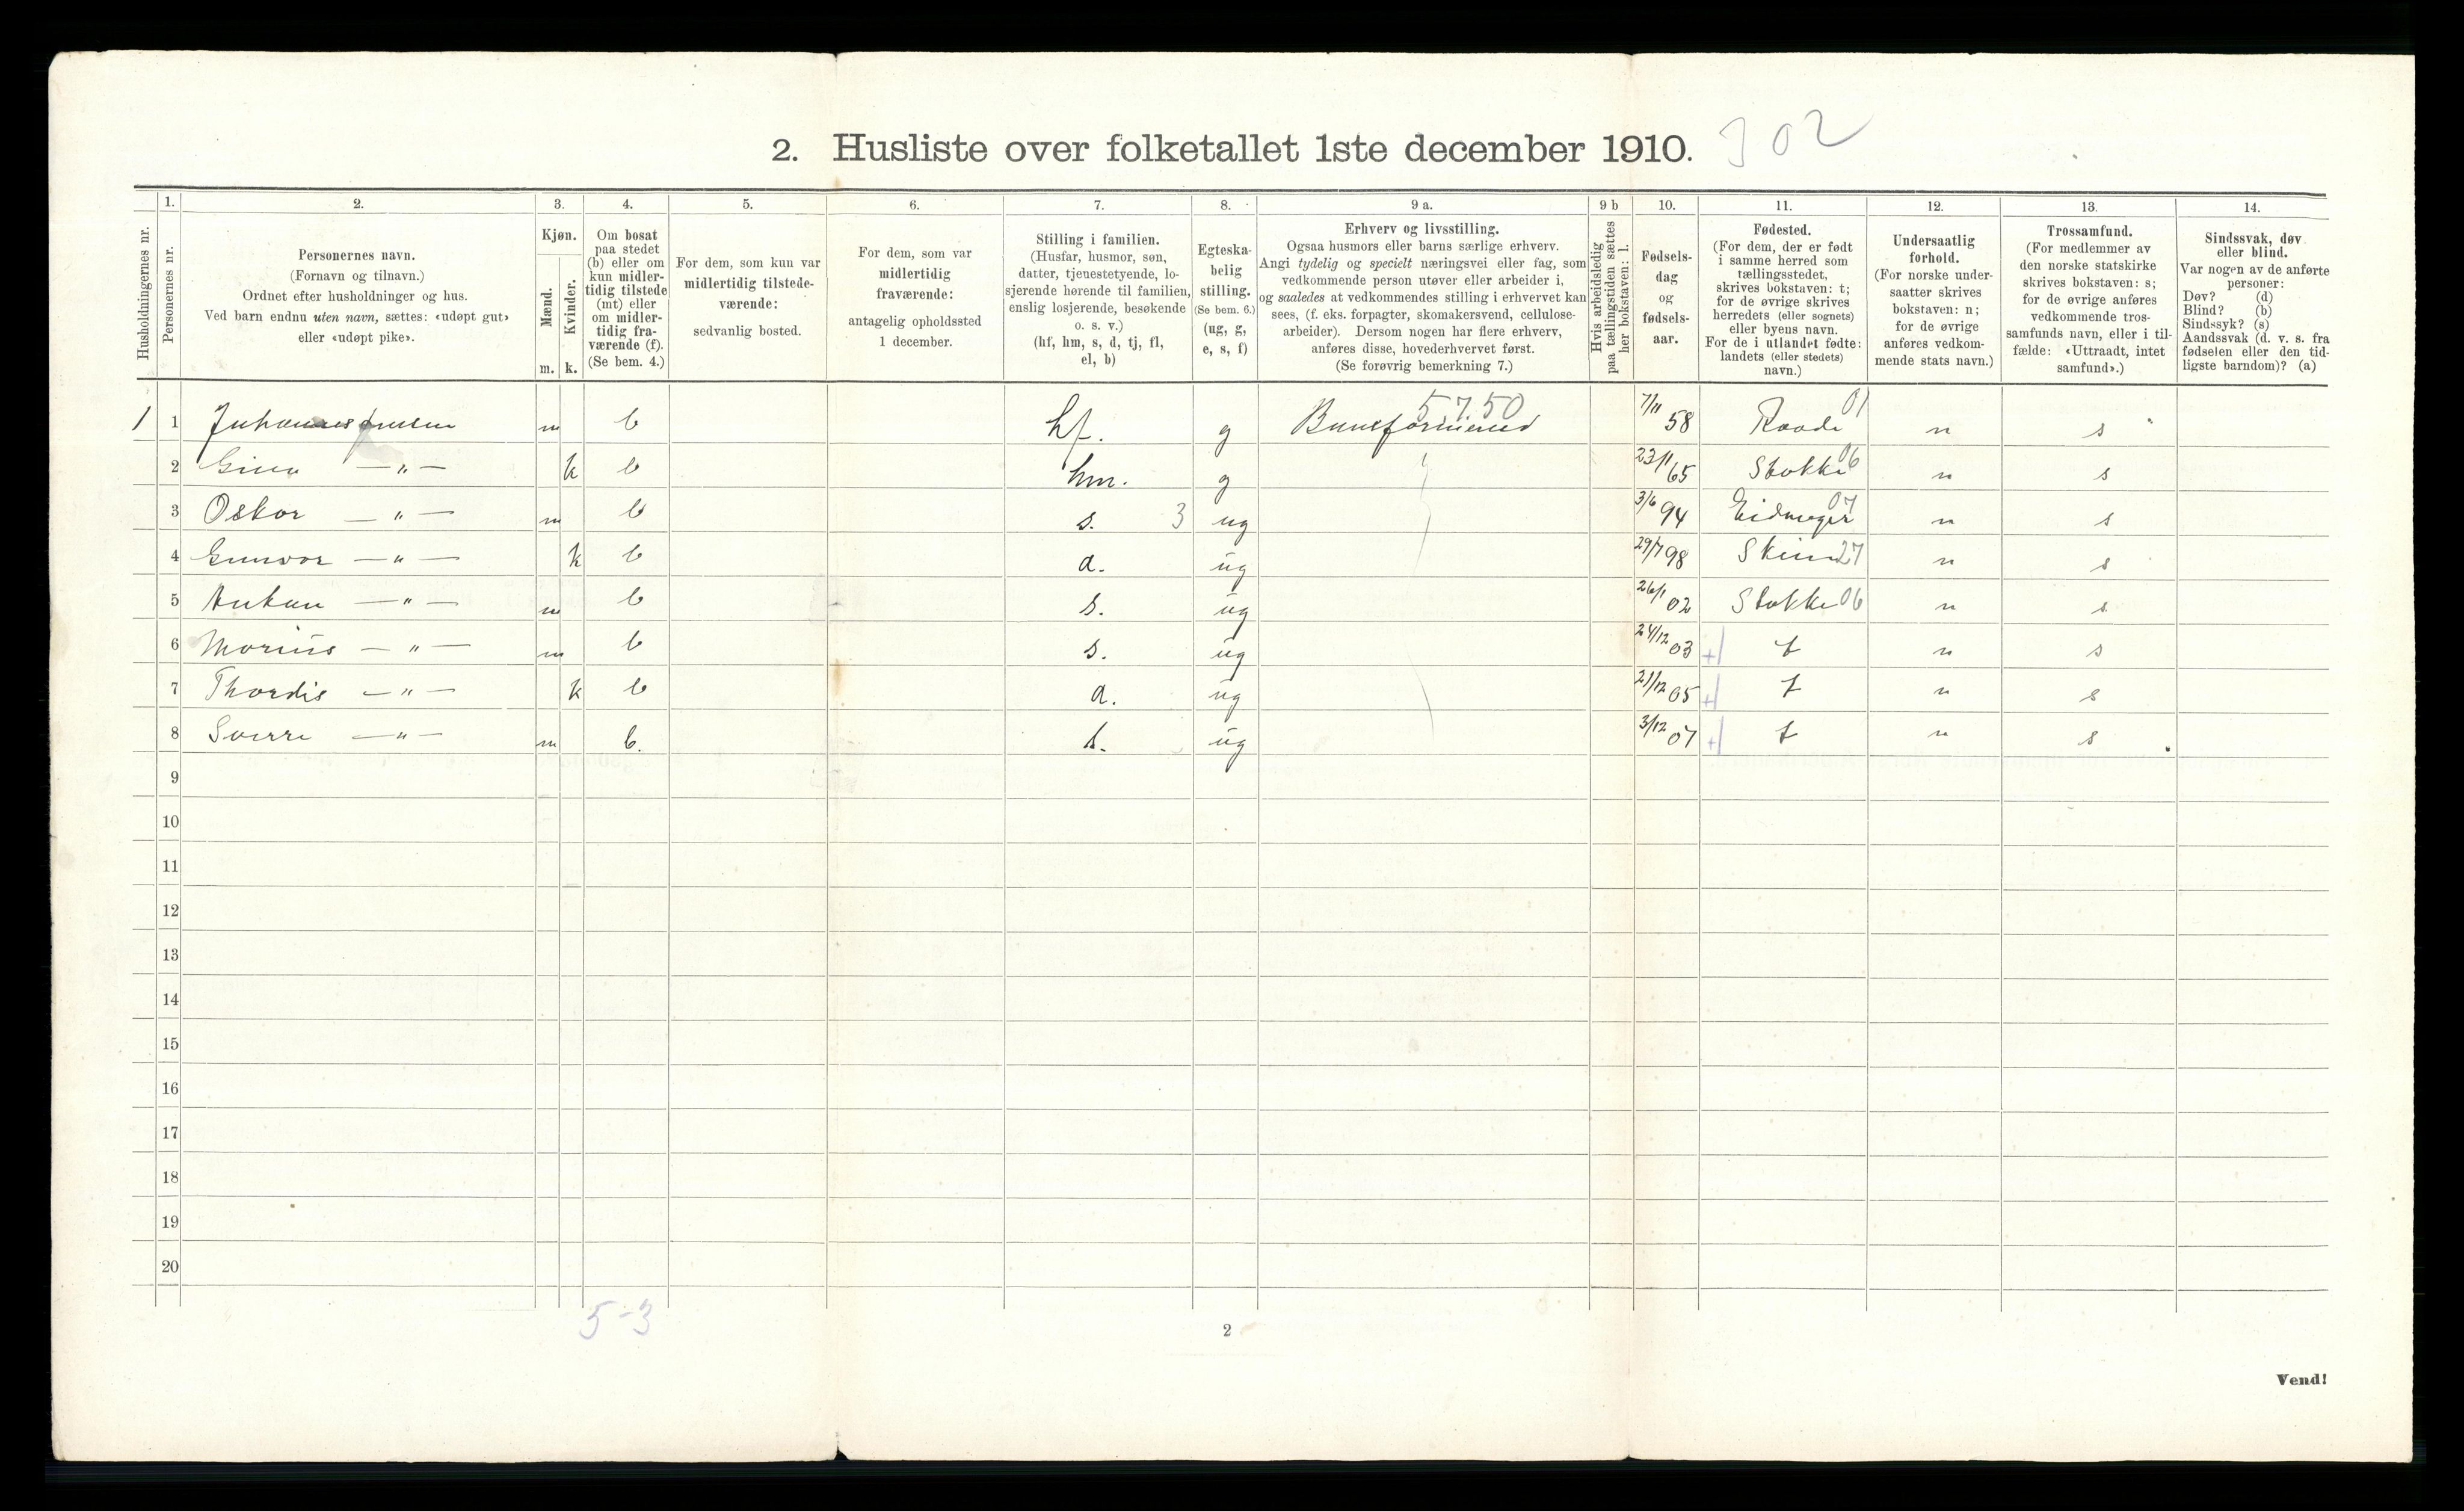 2. Husliste over folketallet 1ste december 1910. 302
Husholdningernes nr.
1. Personernes nr.
2. Personernes navn.
(Fornavn og tilnavn.)
Ordnet efter husholdninger og hus.
Ved barn endnu uten navn, sættes: «udøpt gut»
eller «udøpt pike».
3. Kjøn.
Mænd. m.
Kvinder. k.
4. Om bosat
paa stedet
(b) eller om
kun midler-
tidig tilstede
(mt) eller
om midler-
tidig fra-
værende (f).
(Se bem. 4.)
5. For dem, som kun var
midlertidig tilstede-
værende:
sedvanlig bosted.
6. For dem, som var
midlertidig
fraværende:
antagelig opholdssted
1 december.
7. Stilling i familien.
(Husfar, husmor, søn,
datter, tjenestetyende, lo-
sjerende hørende til familien,
enslig losjerende, besøkende
o. s. v.)
(hf, hm, s, d, tj, fl,
el, b)
8. Egteska-
belig
stilling.
(Se bem. 6.)
(ug, g,
e, s, f)
9 a. Erhverv og livsstilling.
Ogsaa husmors eller barns særlige erhverv.
Angi tydelig og specielt næringsvei eller fag, som
vedkommende person utøver eller arbeider i,
og saaledes at vedkommendes stilling i erhvervet kan
sees, (f. eks. forpagter, skomakersvend, cellulose-
arbeider). Dersom nogen har flere erhverv,
anføres disse, hovederhvervet først.
(Se forøvrig bemerkning 7.)
9 b Hvis arbeidsledig
paa tællingstiden sættes
her bokstaven: l.
10. Fødsels-
dag
og
fødsels-
aar.
11. Fødested.
(For dem, der er født
i samme herred som
tællingsstedet,
skrives bokstaven: t;
for de øvrige skrives
herredets (eller sognets)
eller byens navn.
For de i utlandet fødte:
landets (eller stedets)
navn.)
12. Undersaatlig
forhold.
(For norske under-
saatter skrives
bokstaven: n;
for de øvrige
anføres vedkom-
mende stats navn.)
13. Trossamfund.
(For medlemmer av
den norske statskirke
skrives bokstaven: s;
for de øvrige anføres
vedkommende tros-
samfunds navn, eller i til-
fælde: «Uttraadt, intet
samfund».)
14. Sindssvak, døv
eller blind.
Var nogen av de anførte
personer:
Døv? (d)
Blind? (b)
Sindssyk? (s)
Aandssvak (d. v. s. fra
fødselen eller den tid-
ligste barndom)? (a)
1 1 Johannes m b hf. g Baneformand 5750 7/11 58 Raade 01 n s
2 Gina —„— k b hm. g 23/11 65 Stokke 06 n s
3 Oskar —„— m b s. 3 ug 3/6 94 Eidanger 07 n s
4 Gunvor —„— k b d. ug 29/7 98 Skien 27 n s
5 Anton —„— m b s. ug 26/1 02 Stokke 06 n s
6 Marius —„— m b s. ug 24/12 03 t n s
7 Thordis —„— k b d. ug 21/12 05 t n s
8 Sverre —„— m b. s. ug 3/12 07 t n s
9
10
11
12
13
14
15
16
17
18
19
20
5-3
2
Vend!